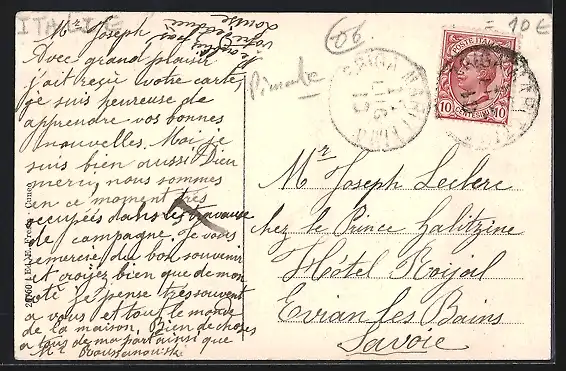 ITALIEN
= 10 €
(06)
Piemonte
Mr Joseph
Avec grand plaisir
j'ait reçu votre cartes
je suis heureuse de
apprendre vos bonnes
nouvelles. Moi je
suis bien aussi Dieu
merci, nous sommes
en ce moment très
occupées dans les travause
de campagne. Je vous
remercie du bon souvenir
et croyez bien que de mon
coté je pense tres souvent
a vous et tout le monde
de la maison. Bien de choses
a tous de ma part ainsi que
Mr
Louise
BRIGA MARITTIMA
POSTE ITALIANE
10 CENTESIMI 10
Mr Joseph Leclerc
chez le Prince Galitzine
Hôtel Roijal
Evian les Bains
Savoie
Cuneo